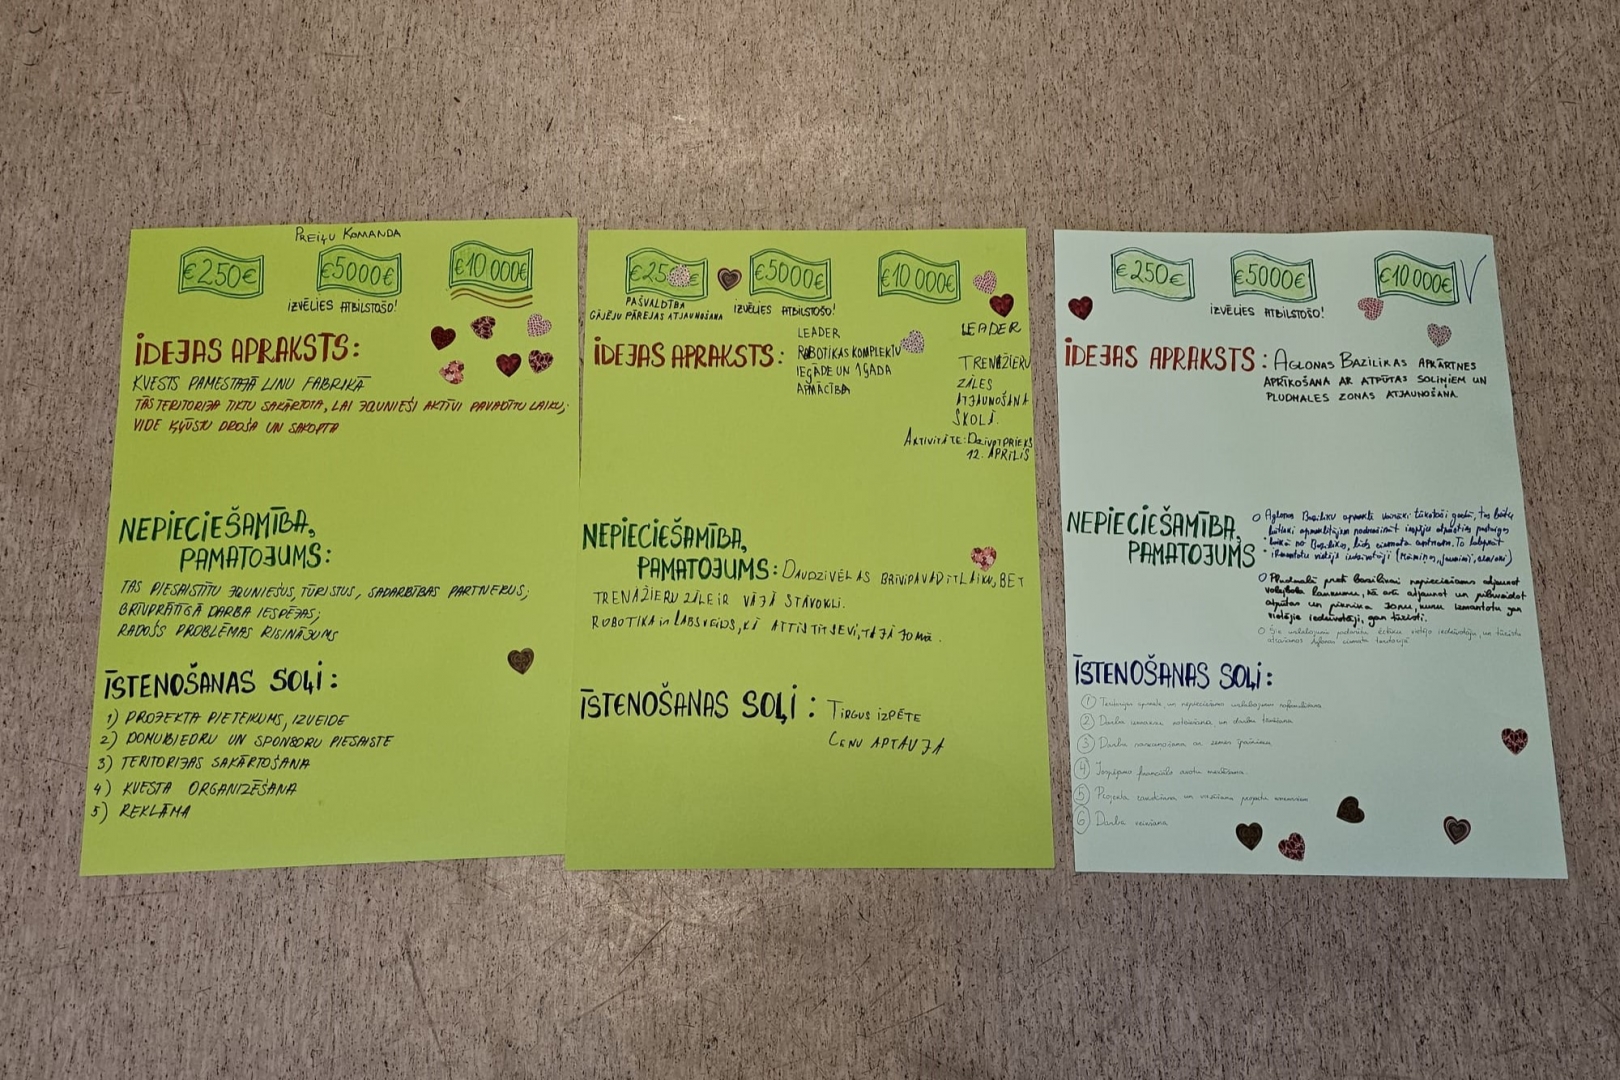 PREIĻU KOMANDA
€250€
€5000€
€10 000€
IZVĒLIES ATBILSTOŠO!
IDEJAS APRAKSTS:
KVESTS PAMESTAJĀ LINU FABRIKĀ
TĀS TERITORIJA TIKTU SAKĀRTOTA, LAI JAUNIEŠI AKTĪVI PAVADĪTU LAIKU;
VIDE KĻŪSTU DROŠA UN SAKOPTA
NEPIECIEŠAMĪBA,
PAMATOJUMS:
TAS PIESAISTĪTU JAUNIEŠUS, TŪRISTUS, SADARBĪBAS PARTNERUS;
BRĪVPRĀTĪGĀ DARBA IESPĒJAS;
RADOŠS PROBLĒMAS RISINĀJUMS
ĪSTENOŠANAS SOĻI:
1) PROJEKTA PIETEIKUMS, IZVEIDE
2) DOMUBIEDRU UN SPONSORU PIESAISTE
3) TERITORIJAS SAKĀRTOŠANA
4) KVESTA ORGANIZĒŠANA
5) REKLĀMA
€25
€5000€
€10 000€
PAŠVALDĪBA
GĀJĒJU PĀREJAS ATJAUNOŠANA
IZVĒLIES ATBILSTOŠO!
IDEJAS APRAKSTS:
LEADER
ROBOTIKAS KOMPLEKTU
IEGĀDE UN 1 GADA
APMĀCĪBA
LEADER
TRENAŽIERU
ZĀLES
ATJAUNOŠANA
ŠKOLĀ.
AKTIVITĀTE: DZĪVOT PRIEKS
12. APRĪLIS
NEPIECIEŠAMĪBA,
PAMATOJUMS: DAUDZI VĒLAS BRĪVI PAVADĪT LAIKU, BET
TRENAŽIERU ZĀLE IR VĀJĀ STĀVOKLĪ.
ROBOTIKA IR LABS VEIDS, KĀ ATTĪSTĪT SEVI, TAJĀ JOMĀ.
ĪSTENOŠANAS SOĻI: TIRGUS IZPĒTE
CENU APTAUJA
€250€
€5000€
€10 000€ V
IZVĒLIES ATBILSTOŠO!
IDEJAS APRAKSTS: AGLONAS BAZILIKAS APKĀRTNES
APRĪKOŠANA AR ATPŪTAS SOLIŅIEM UN
PLUDMALES ZONAS ATJAUNOŠANA
NEPIECIEŠAMĪBA,
PAMATOJUMS
Aglonas Baziliku apmeklē vairāki tūkstoši gadā, tas būtu
lieliski apmeklētājiem nodrošināt iespēju atpūsties
no Bazilikas, līdz
izmantotu vietējie iedzīvotāji
Pludmalē pret Bazilikai nepieciešams atjaunot
volejbola laukumu, kā arī atjaunot un pilnveidot
atpūtas un piknika zonu, kuru izmantotu gan
vietējie iedzīvotāji, gan tūristi.
ĪSTENOŠANAS SOĻI:
1 Teritorijas apsekošana un nepieciešamo uzlabojumu
2 Darba
3 Darba saskaņošana ar zemes īpašnieku
4 Iespējamo finansiālo avotu meklēšana
5 Projekta
6 Darba veikšana